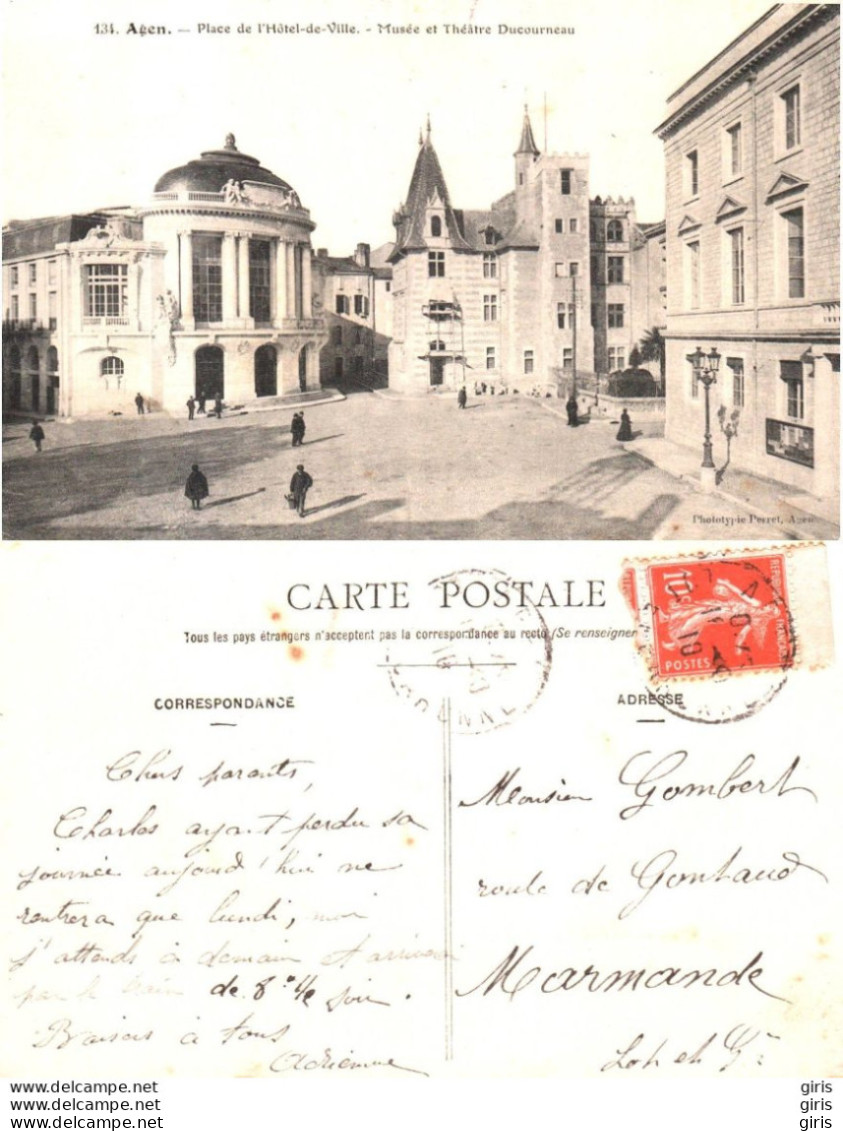 134. Agen. — Place de l'Hôtel-de-Ville. - Musée et Théâtre Ducourneau
Phototypie Perret, Agen
CARTE POSTALE
Tous les pays étrangers n'acceptent pas la correspondance au recto (Se renseigner
CORRESPONDANCE
ADRESSE
10c
POSTES
Chers parents,
Charles ayant perdu sa
journée aujourd'hui ne
rentrera que lundi, moi
j'attends à demain et arriverai
par le train de 8h 1/4 soir.
Baisers à tous
Adrienne
Monsieur Gombert
route de Gontaud
Marmande
Lot et Gne
www.delcampe.net
giris
giris
giris